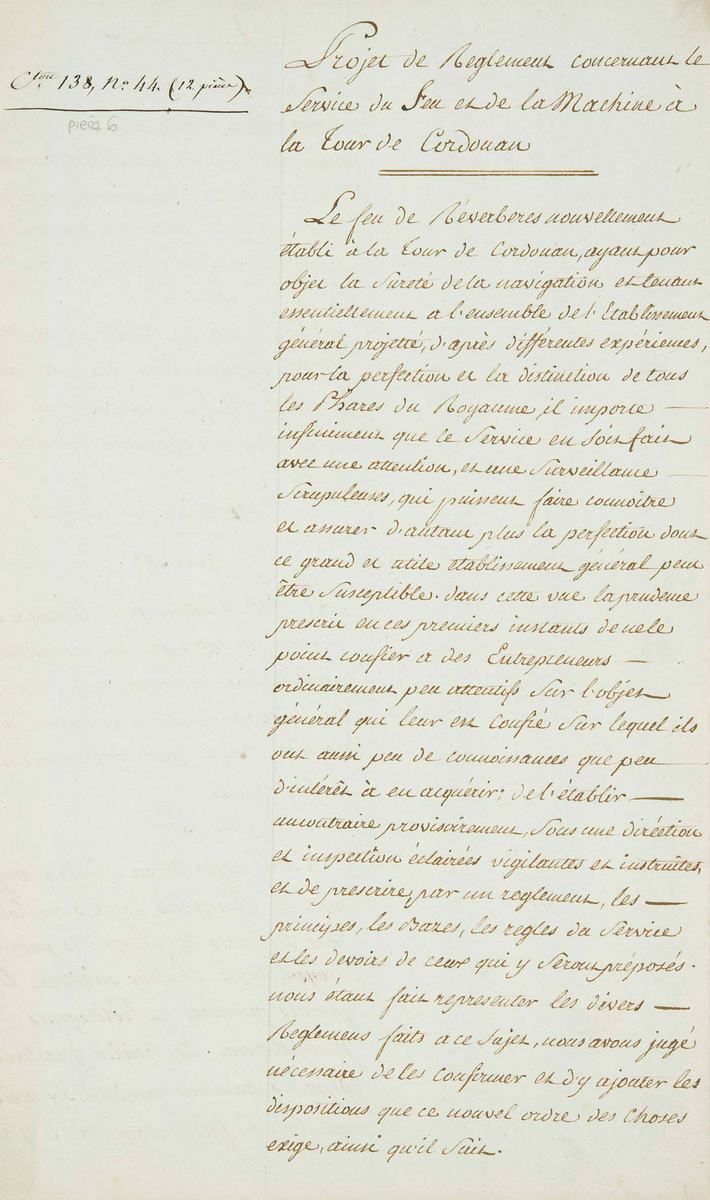 C.ton 138, N.o 44. (12 pièces).
pièce 6
Projet de Reglement concernant le
Service du Feu et de la Machine à
la Tour de Cordouan
Le feu de Réverberes nouvellement
établi à la Tour de Cordouan, ayant pour
objet la Sureté de la navigation et tenant
essentiellement a l'ensemble de l'Etablissement
général projetté, d'après différentes expériences,
pour la perfection et la distinction de tous
les Phares du Royaume, il importe —
infiniment que le Service en soit fait
avec une attention, et une Surveillance —
Scrupuleuses, qui puissent faire connoître
et assurer d'autant plus la perfection dont
ce grand et utile etablissement général peut
être Susceptible. dans cette vue la prudence
prescrit en ces premiers instants de ne le
point confier a des Entrepreneurs —
ordinairement peu attentifs Sur l'objet
général qui leur est confié Sur lequel ils
ont aussi peu de connoissances que peu —
d'intérêt à en acquérir; de l'établir —
au contraire provisoirement, Sous une diréction
et inspection éclairées vigilantes et instruites,
et de prescrire, par un reglement, les —
principes, les Bazes, les regles du Service
et les devoirs de ceux qui y Seront préposés.
nous étant fait representer les divers —
Reglemens faits a ce Sujet, nous avons jugé
nécessaire de les confirmer et d'y ajouter les
dispositions que ce nouvel ordre des Choses
exige, ainsi qu'il Suit.